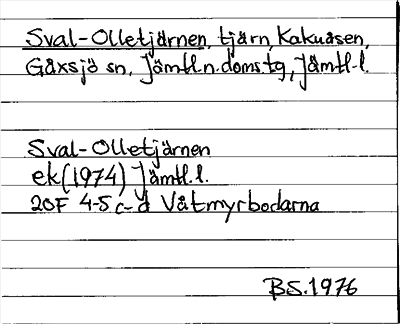 Sval-Olletjärnen, tjärn, Kakuåsen,
Gåxsjö sn, Jämtl.n.doms.tg, Jämtl.l.
Sval-Olletjärnen
ek(1974) Jämtl.l.
20F 4-5 c-d Våtmyrbodarna
BS.1976